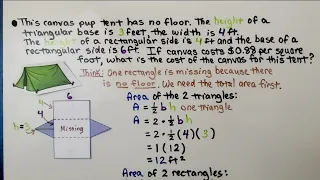 This canvas pup tent has no floor. The height of a
triangular base is 3 feet, the width is 4 ft.
The height of a rectangular side is 4 ft and the base of a
rectangular side is 6 ft. If canvas costs $0.88 per square
foot, what is the cost of the canvas for this tent?
Think: One rectangle is missing because there
is no floor. We need the total area first.
Area of the 2 triangles:
A = 1/2 b h one triangle
A = 2 · 1/2 b h
= 2 · 1/2 (4)(3)
= 1 (12)
= 12 ft²
Area of 2 rectangles:
6
4
4
h = 3
Missing